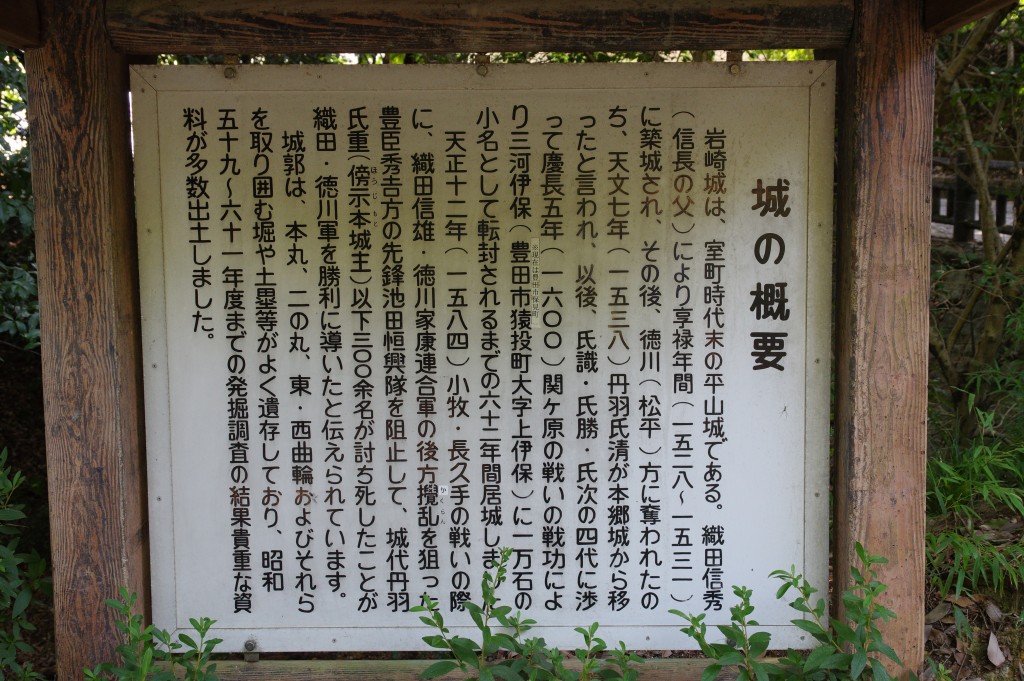 城の概要
岩崎城は、室町時代末の平山城である。織田信秀
(信長の父)により享禄年間(一五二八〜一五三一)
に築城され、その後、徳川(松平)方に奪われたの
ち、天文七年(一五三八)丹羽氏清が本郷城から移
ったと言われ、以後、氏識・氏勝・氏次の四代に渉
って慶長五年(一六〇〇)関ヶ原の戦いの戦功によ
※現在は豊田市保見町
り三河伊保(豊田市猿投町大字上伊保)に一万石の
小名として転封されるまでの六十二年間居城しま
天正十二年(一五八四)小牧・長久手の戦いの際
に、織田信雄・徳川家康連合軍の後方攪乱を狙った
かくらん
豊臣秀吉方の先鋒池田恒興隊を阻止して、城代丹羽
氏重(傍示本城主)以下三〇〇余名が討ち死したことが
ほうじもと
織田・徳川軍を勝利に導いたと伝えられています。
城郭は、本丸、二の丸、東・西曲輪およびそれら
を取り囲む堀や土塁等がよく遺存しており、昭和
五十九〜六十一年度までの発掘調査の結果貴重な資
料が多数出土しました。